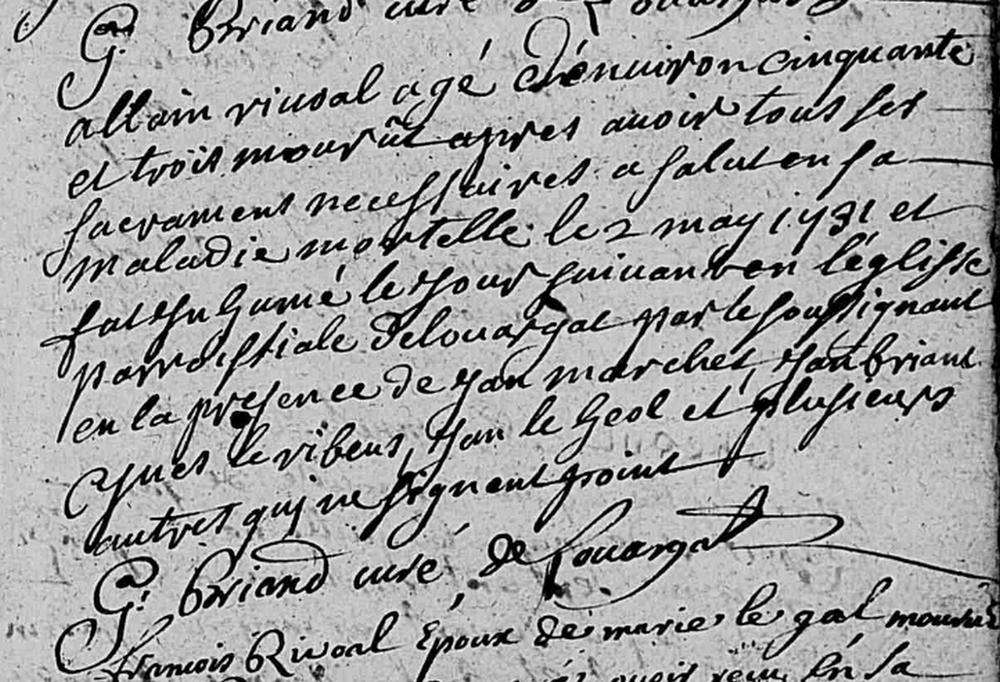 G. Briand curé de Louargat
allain rivoal agé d'environ cinquante
et trois mourût apres avoir tous ses
sacrament necessaires a salut en sa
maladie mortelle le 2 may 1731 et
fut inhumé le jour suivant en l'églisse
parroissiale de louargat par le soussignant
en la presence de yan marchet, yan briant
yves le ribens, yan le geol et plusieurs
autres qui ne signent point
G. Briand curé de Louargat
francois Rivoal Epoux de marie le gal mourut
avoir reçu En sa